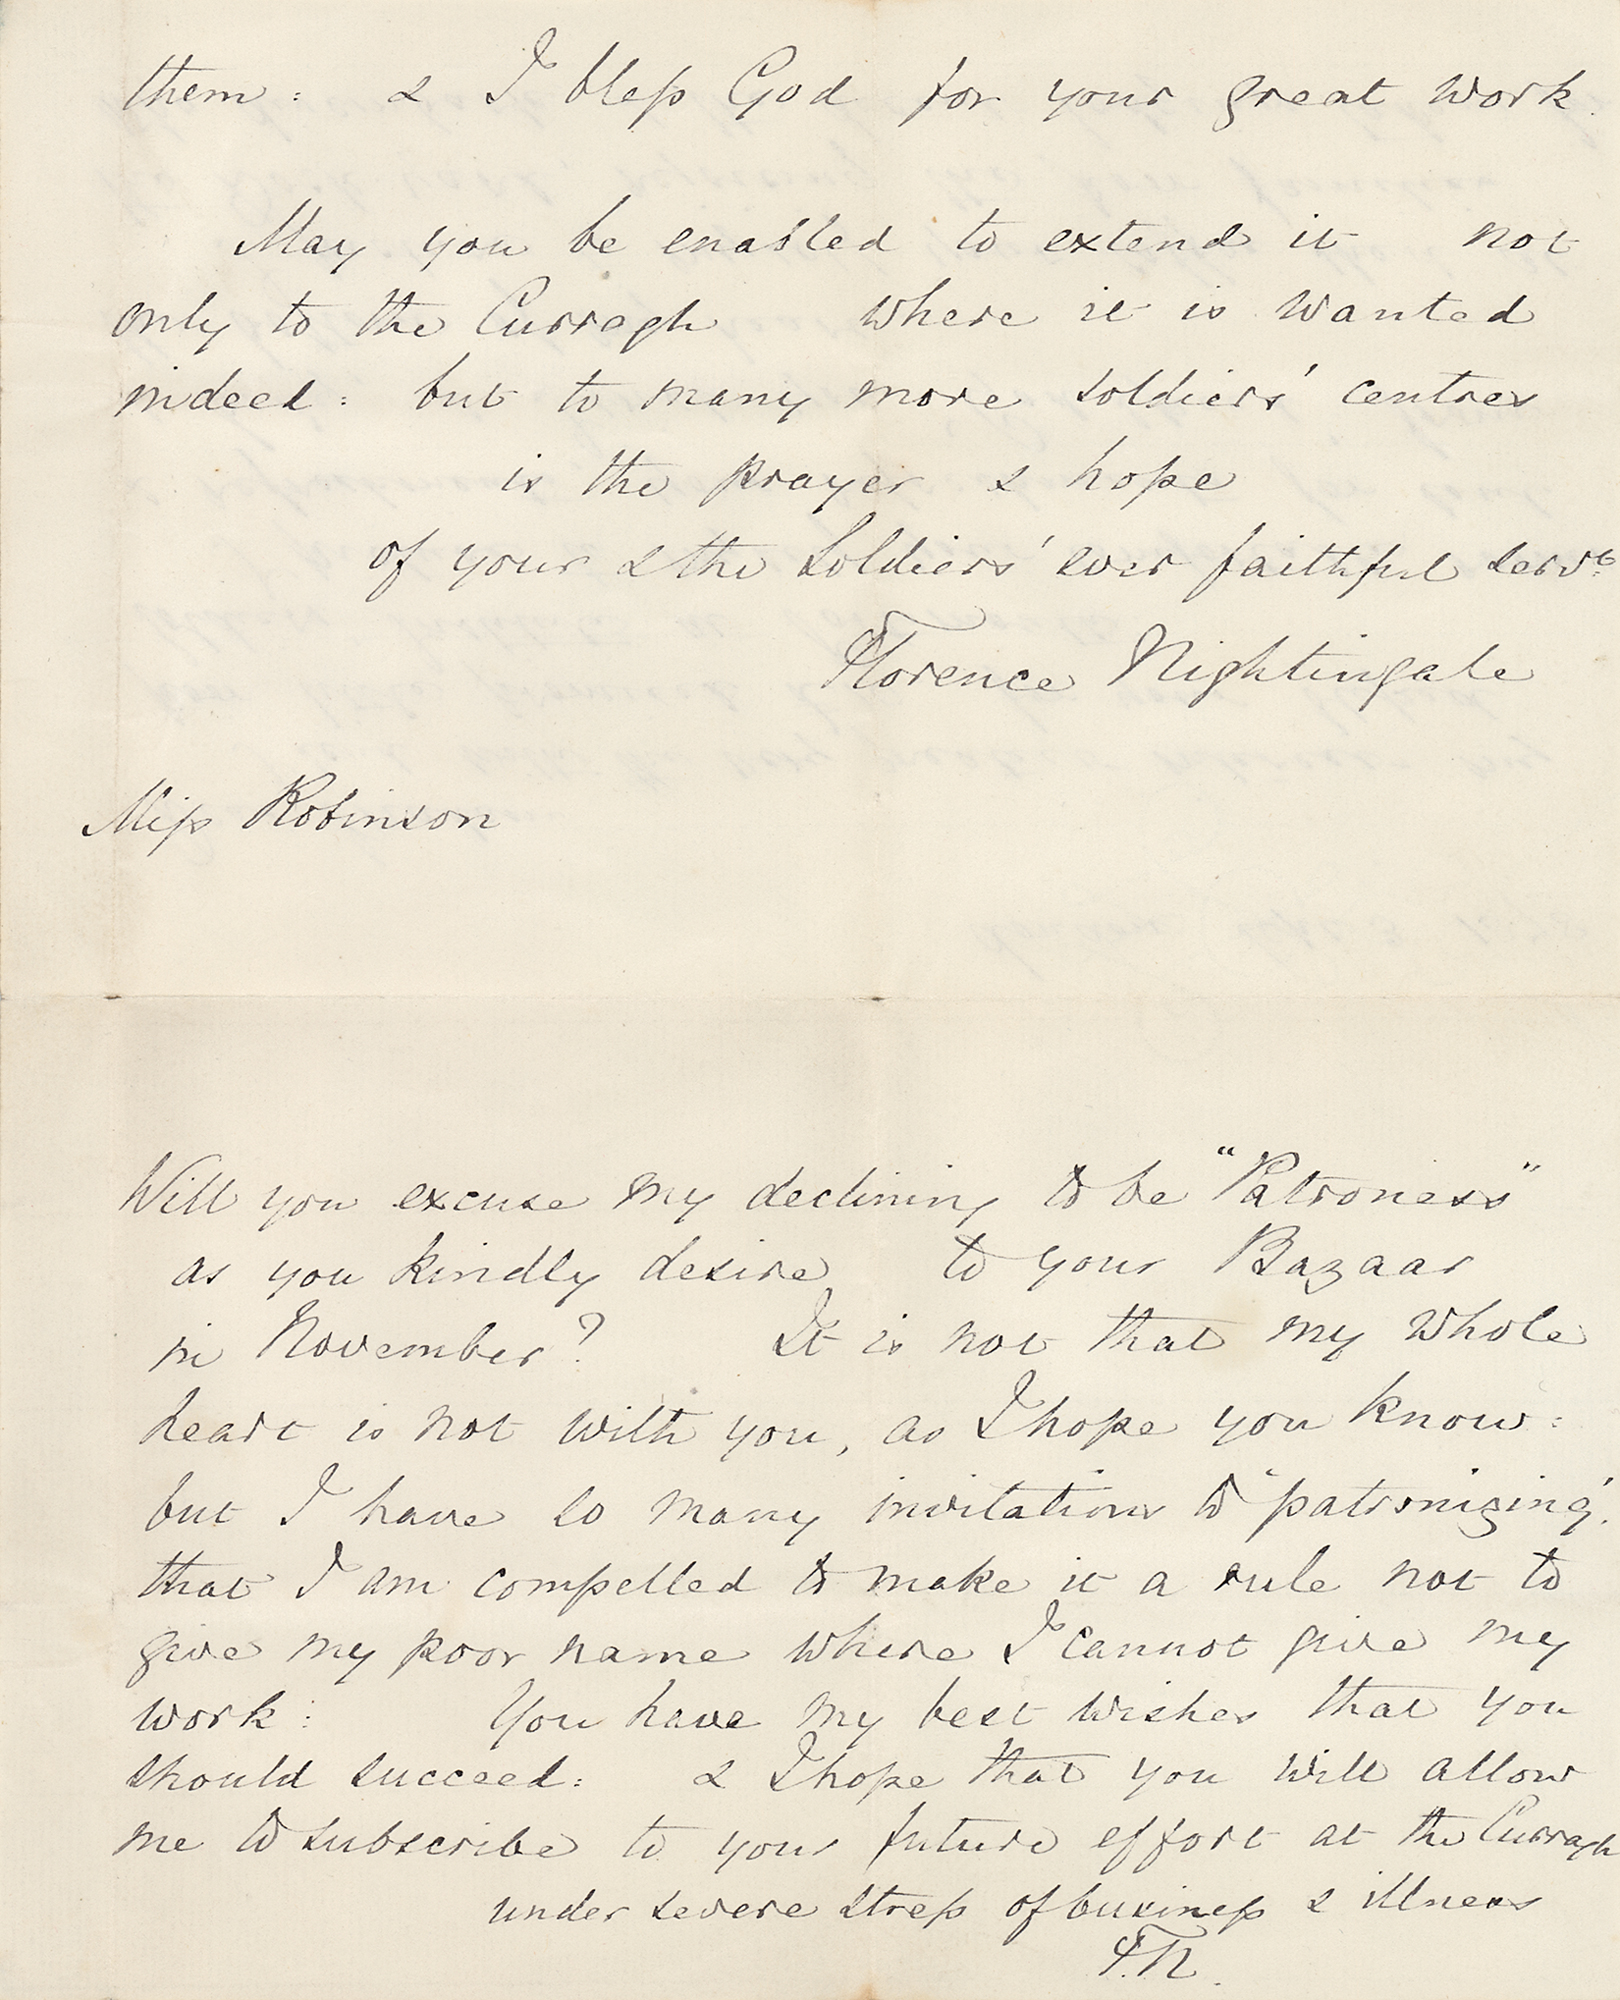 them: & I bless God for your great work.
May you be enabled to extend it not
only to the Curragh where it is wanted
indeed: but to many more soldiers' centres
is the prayer & hope
of your & the Soldiers' ever faithful servt.
Florence Nightingale
Miss Robinson
Will you excuse my declining to be "Patroness"
as you kindly desire to your Bazaar
in November? It is not that my whole
heart is not with you, as I hope you know:
but I have so many invitations to 'patronizing',
that I am compelled to make it a rule not to
give my poor name where I cannot give my
work: You have my best wishes that you
should succeed: & I hope that you will allow
me to subscribe to your future effort at the Curragh
under severe stress of business & illness
F.N.